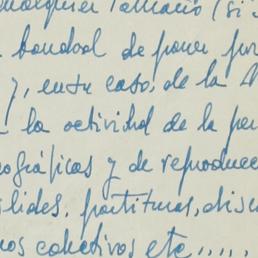 tamaño (si
bondad de poner por
y, en su caso, de la
la actividad de la pe
ográficos y de reproducc
slides, partituras, disc
nos colectivos etc.....